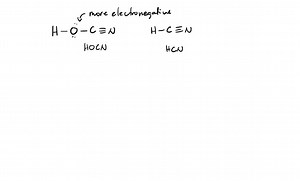 more electronegative
H–Ö–C≡N H–C≡N
HOCN HCN